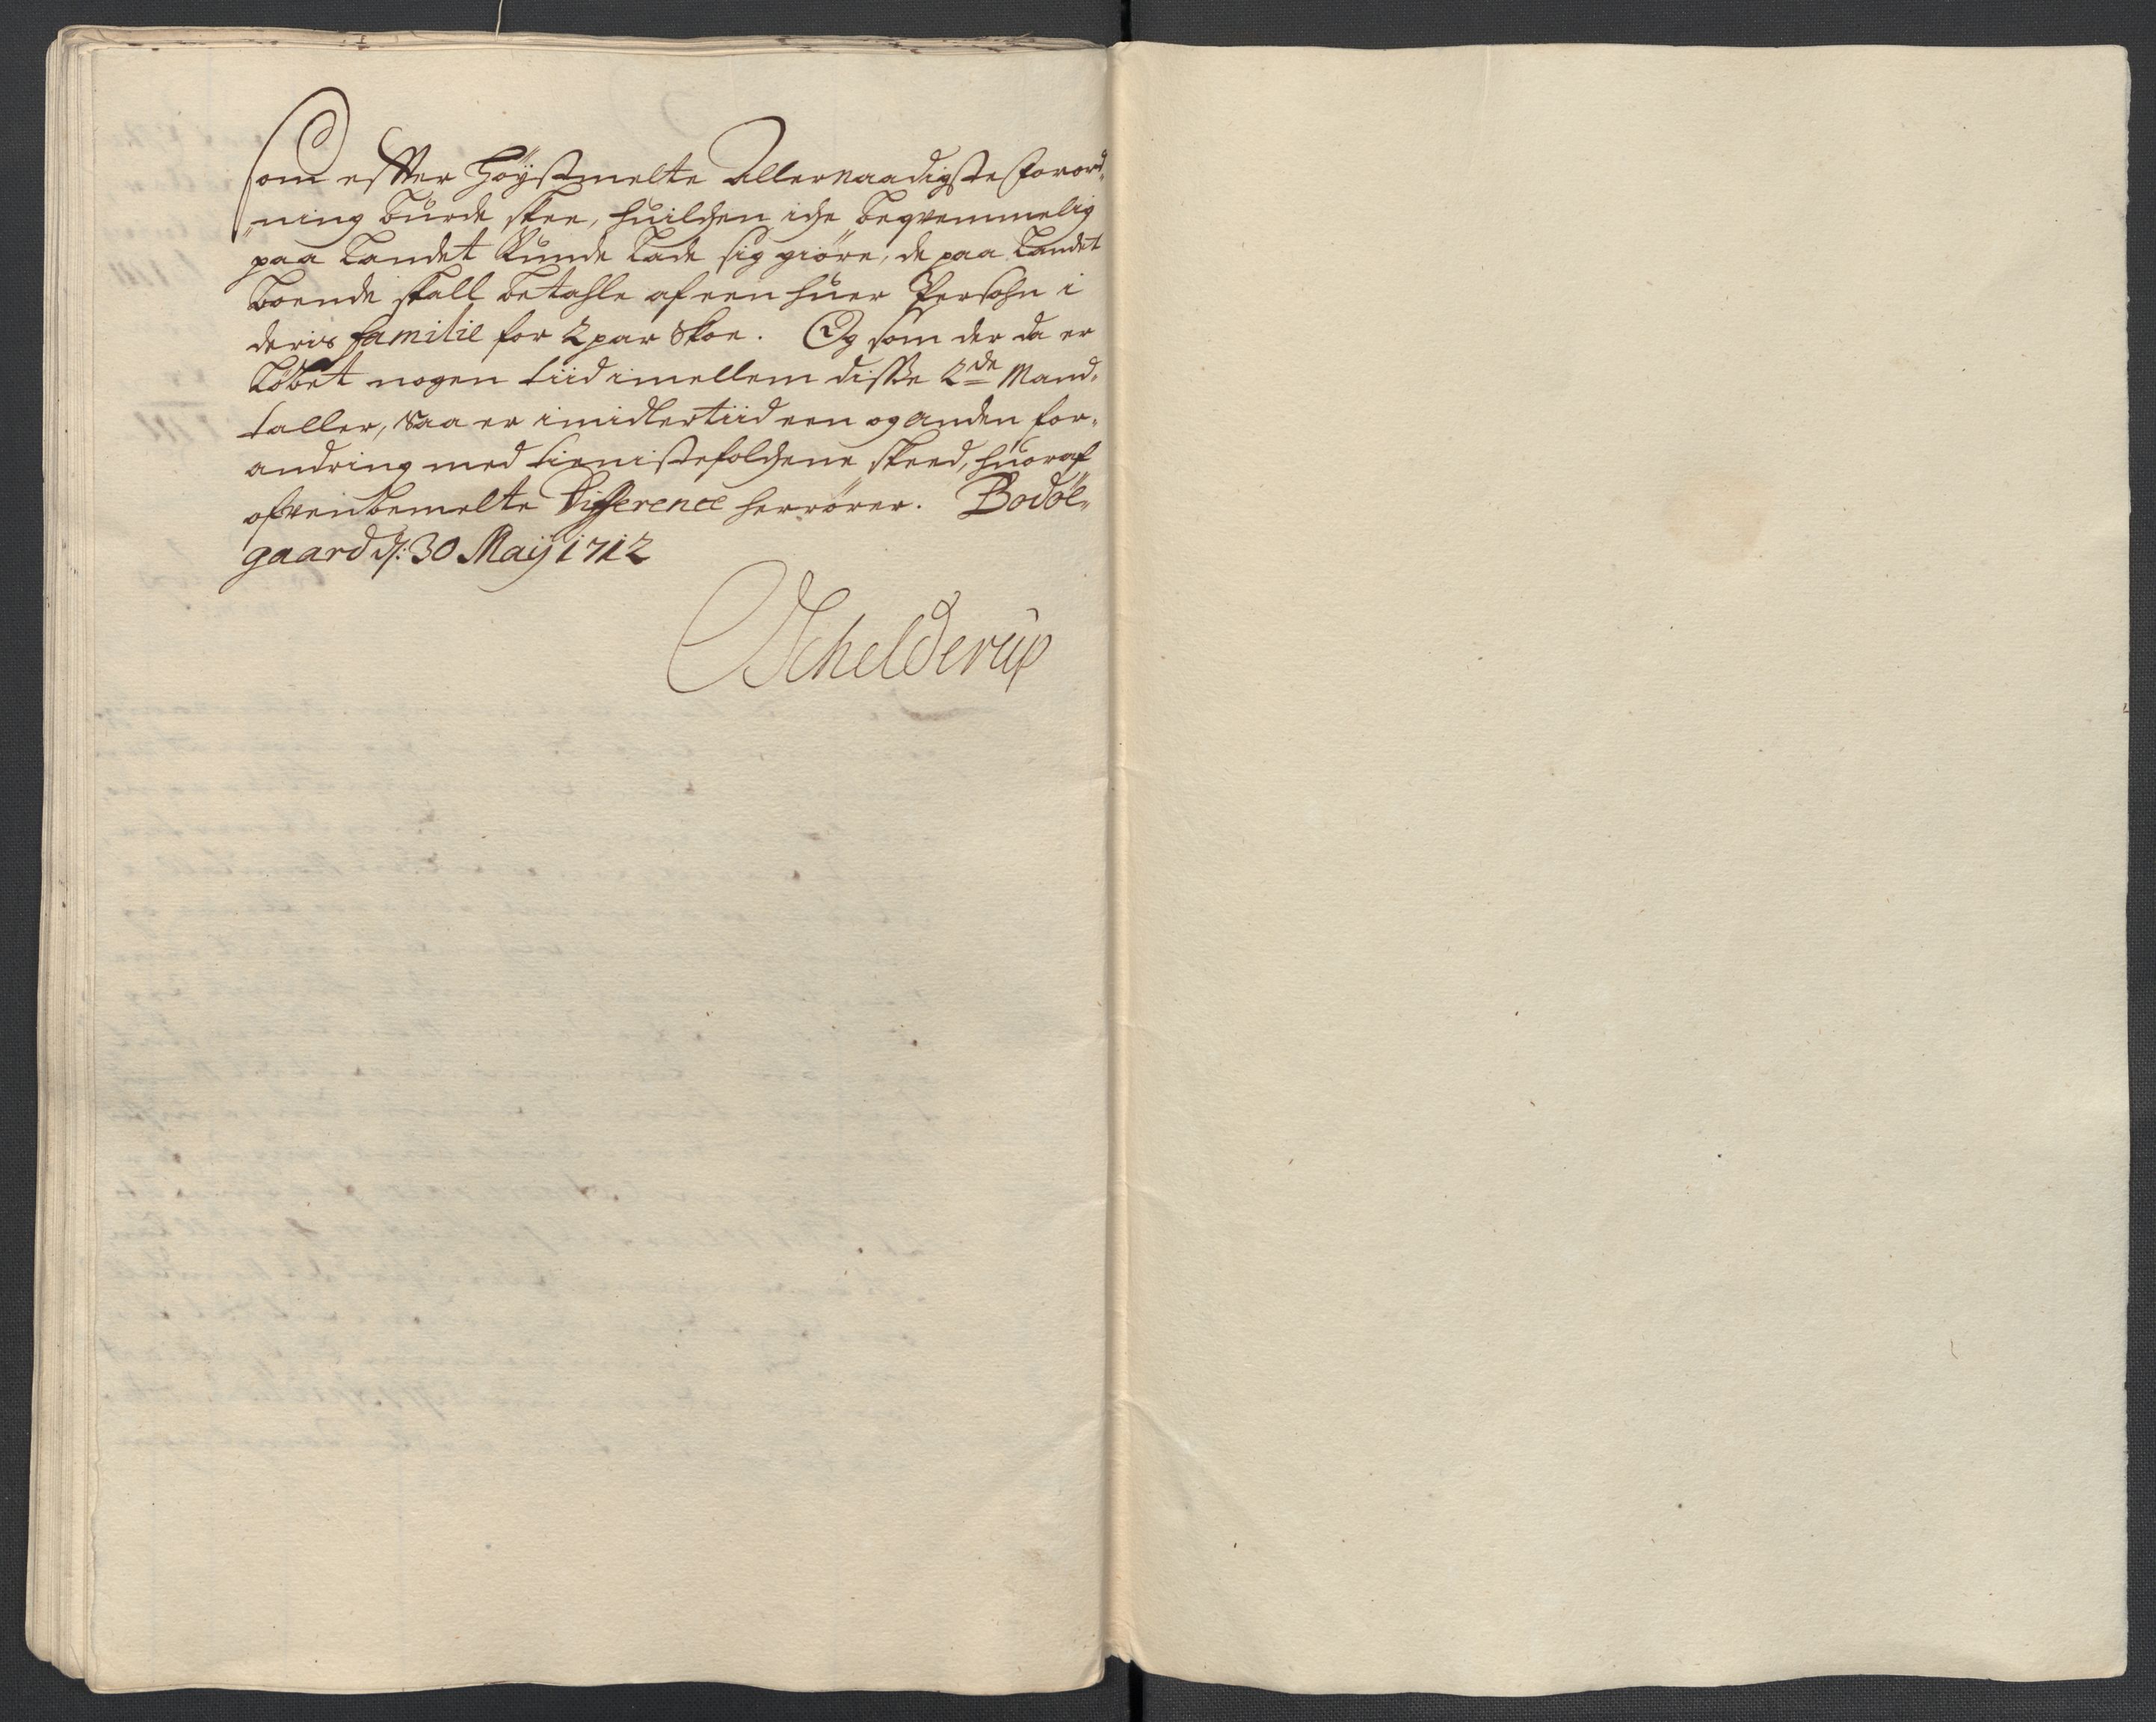 Som efter Høÿstmelte Allernaadigste forord-
ning burde skee, huilchen iche beqvemmelig
paa Landet Kunde Lade sig giøre, de paa Landet
boende skall betahle af een huer Persohn i
deris familie for 2 par Skoe. Og som der da er
Løbet nogen tiid imellem disse 2de Mand-
taller, Saa er imidlertiid een og anden for-
andring med tienistefolchene skeed, huoraf
ofvenbemelte Difference herrører. Bodøe-
gaard d: 30 Maÿ 1712
Schelderup